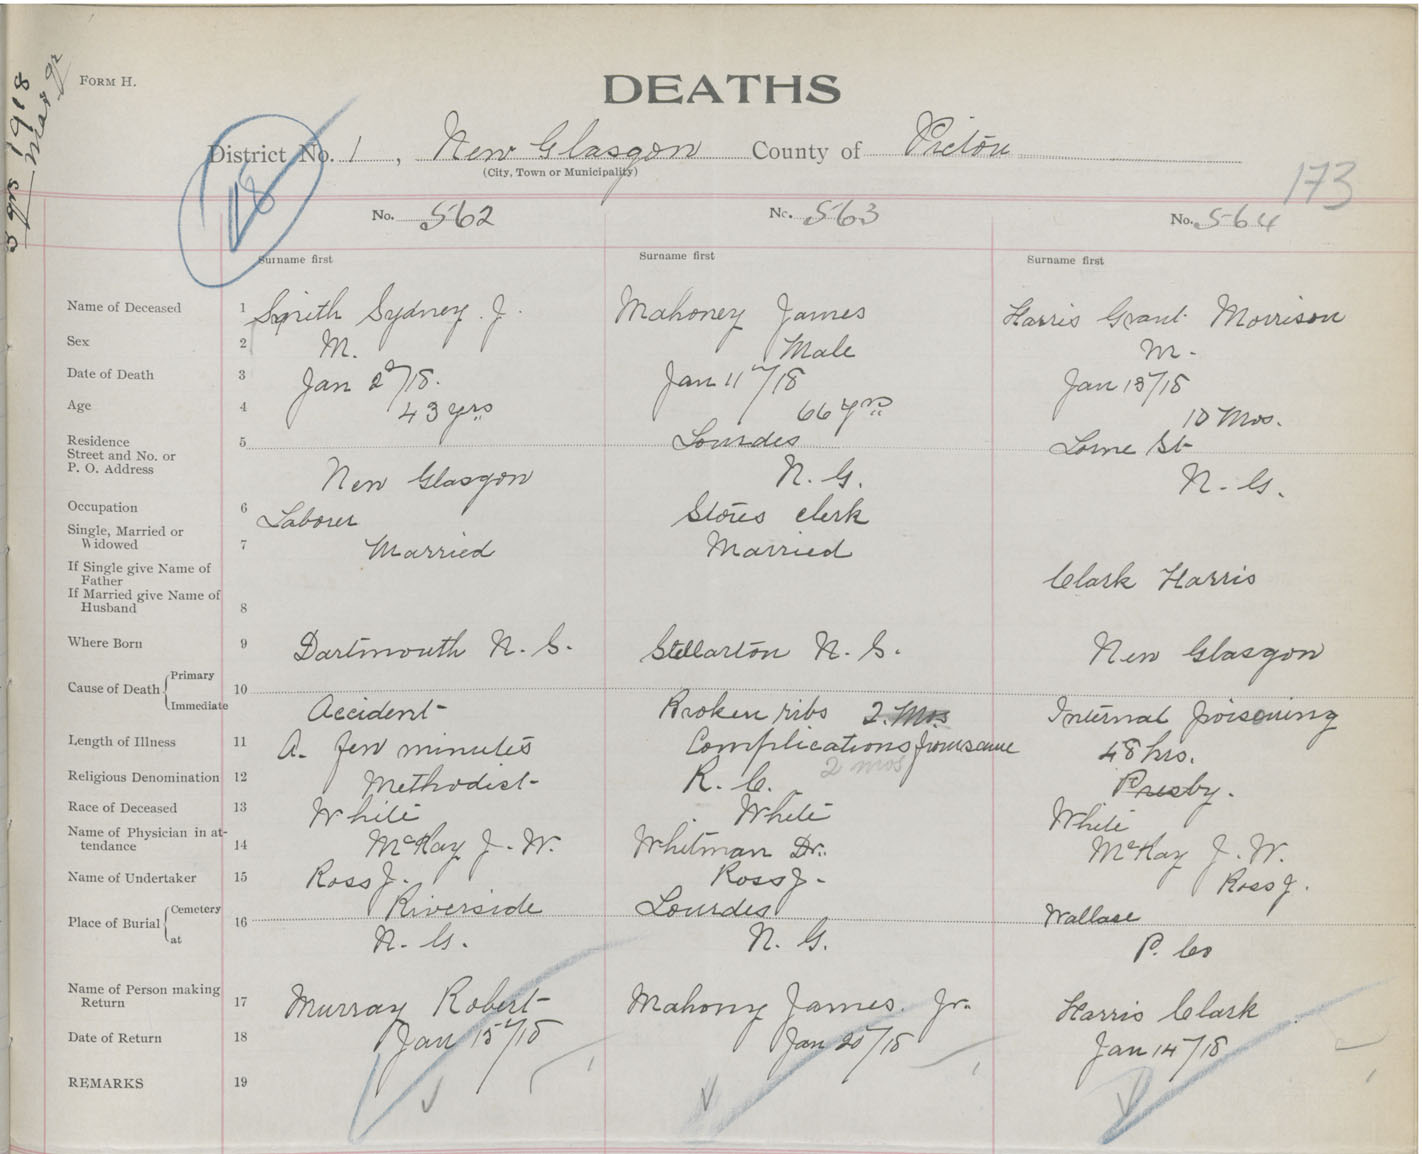 3 Mos 1918
Mar qr
FORM H.
DEATHS
District No. 1, New Glasgow County of Pictou
(City, Town or Municipality)
18
173
No. 562 No. 563 No. 564
Surname first Surname first Surname first
Name of Deceased 1 Smith Sydney. J. Mahoney James Harris Grant Morrison
Sex 2 M. Male M.
Date of Death 3 Jan 2"/18. Jan 11"/18 Jan 13"/18
Age 4 43 yrs 66 yrs 10 Mos.
Residence 5 Lourdes Lorne St
Street and No. or
P. O. Address New Glasgow N. G. N. G.
Occupation 6 Laborer Stores clerk
Single, Married or
Widowed 7 Married Married
If Single give Name of
Father Clark Harris
If Married give Name of
Husband 8
Where Born 9 Dartmouth N. S. Stellarton N. S. New Glasgow
Cause of Death { Primary 10
Immediate Accident Broken ribs 2. Mos Internal poisoning
Length of Illness 11 A. few minutes Complications from same 48 hrs.
2 mos
Religious Denomination 12 Methodist R. C. Presby.
Race of Deceased 13 White White White
Name of Physician in at-
tendance 14 McKay J. W. Whitman Dr. McKay J. W.
Name of Undertaker 15 Ross J. Ross J. Ross J.
Place of Burial { Cemetery 16 Riverside Lourdes Wallace
at N. G. N. G. P. Co
Name of Person making
Return 17 Murray Robert Mahony James. Jr. Harris Clark
Date of Return 18 Jan 15"/18 Jan 20"/18 Jan 14"/18
REMARKS 19